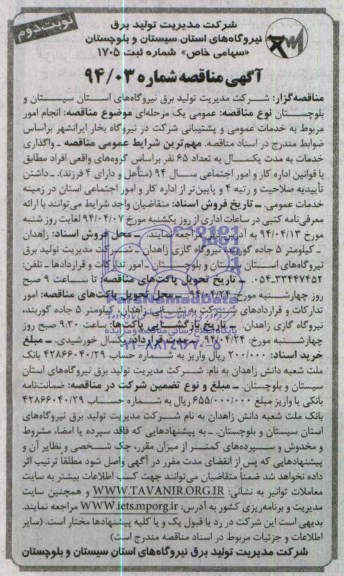 نوبت دوم
شرکت مدیریت تولید برق
نیروگاه‌های استان سیستان و بلوچستان
«سهامی خاص» شماره ثبت ۱۷۰۵
آگهی مناقصه شماره ۹۴/۰۳
مناقصه‌گزار: شرکت مدیریت تولید برق نیروگاه‌های استان سیستان و
بلوچستان نوع مناقصه: عمومی یک مرحله‌ای موضوع مناقصه: انجام امور
مربوط به خدمات عمومی و پشتیبانی شرکت در نیروگاه بخار ایرانشهر براساس
ضوابط مندرج در اسناد مناقصه. مهم‌ترین شرایط عمومی مناقصه - واگذاری
خدمات به مدت یکسال به تعداد ۶۵ نفر براساس گروه‌های واقعی افراد مطابق
با قوانین اداره کار و امور اجتماعی سال ۹۴ (متأهل و دارای ۴ فرزند). ـ داشتن
تأییدیه صلاحیت و رتبه ۴ و پایین‌تر از اداره کار و امور اجتماعی استان در زمینه
خدمات عمومی. ـ تاریخ فروش اسناد: متقاضیان واجد شرایط می‌توانند با ارائه
معرفی‌نامه کتبی در ساعات اداری از روز یکشنبه مورخ ۹۴/۰۴/۰۷ لغایت روز شنبه
مورخ ۹۴/۰۴/۱۳ به آدرس ذیل مراجعه نمایند. ـ محل فروش اسناد: زاهدان
ـ کیلومتر ۵ جاده گوربند، نیروگاه گازی زاهدان، شرکت مدیریت تولید برق
نیروگاه‌های استان سیستان و بلوچستان ـ امور تدارکات و قراردادها ـ تلفن:
۰۵۴-۳۳۴۴۷۴۵۲ ـ تاریخ تحویل پاکت‌های مناقصه: تا ساعت ۹ صبح
روز چهارشنبه مورخ ۹۴/۰۴/۲۴ ـ محل تحویل پاکت‌های مناقصه: امور
تدارکات و قراردادهای شرکت به نشانی زاهدان، کیلومتر ۵ جاده گوربند،
نیروگاه گازی زاهدان. ـ تاریخ بازگشایی پاکت‌ها: ساعت ۹:۳۰ صبح روز
چهارشنبه مورخ ۹۴/۰۴/۲۴ ـ مدت قرارداد: یکسال خورشیدی. ـ مبلغ
خرید اسناد: ۲۰۰/۰۰۰ ریال واریز به شماره حساب ۴۲۸۶۶۰۴۰/۲۹ بانک
ملت شعبه دانش زاهدان به نام: شرکت مدیریت تولید برق نیروگاه‌های استان
سیستان و بلوچستان ـ مبلغ و نوع تضمین شرکت در مناقصه: ضمانت‌نامه
بانکی یا واریز مبلغ ۶۵۵/۰۰۰/۰۰۰ ریال به شماره حساب ۴۲۸۶۶۰۴۰/۲۹
بانک ملت شعبه دانش زاهدان به نام شرکت مدیریت تولید برق نیروگاه‌های
استان سیستان و بلوچستان. ـ به پیشنهادهایی که فاقد سپرده یا امضا، مشروط
و مخدوش و سپرده‌های کمتر از میزان مقرر، چک شخصی و نظایر آن و
پیشنهادهایی که پس از انقضای مدت مقرر در آگهی واصل شود مطلقاً ترتیب اثر
داده نخواهد شد ضمناً متقاضیان می‌توانند جهت کسب اطلاعات بیشتر به سایت
معاملات توانیر به نشانی: WWW.TAVANIR.ORG.IR و همچنین سایت
مدیریت و برنامه‌ریزی کشور به آدرس: www.iets.mporg.ir مراجعه نمایند.
بدیهی است این شرکت در رد یا قبول یک و یا کلیه پیشنهادها مختار است. (سایر
اطلاعات و جزئیات مربوط در اسناد مناقصه مندرج است)
شرکت مدیریت تولید برق نیروگاه‌های استان سیستان و بلوچستان